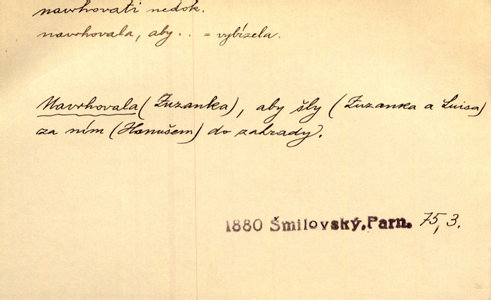 navrhovati nedok.
navrhovala, aby . . = vybízela.
Navrhovala (Zuzanka), aby šly (Zuzanka a Luisa)
za ním (Hanušem) do zahrady.
1880 Šmilovský, Parn. 75, 3.